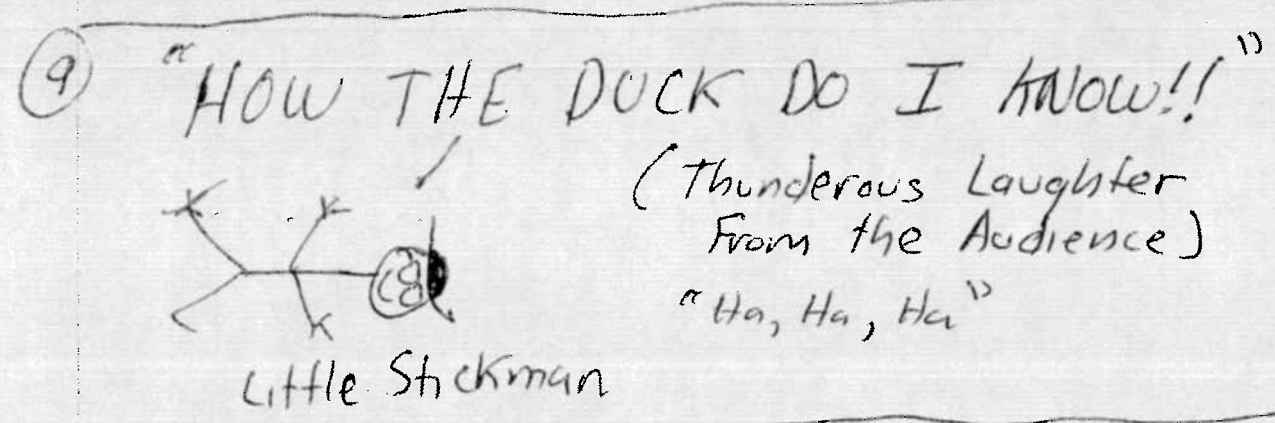 9 "HOW THE DUCK DO I KNOW!!"
(Thunderous Laughter
From the Audience)
"Ha, Ha, Ha"
Little Stickman